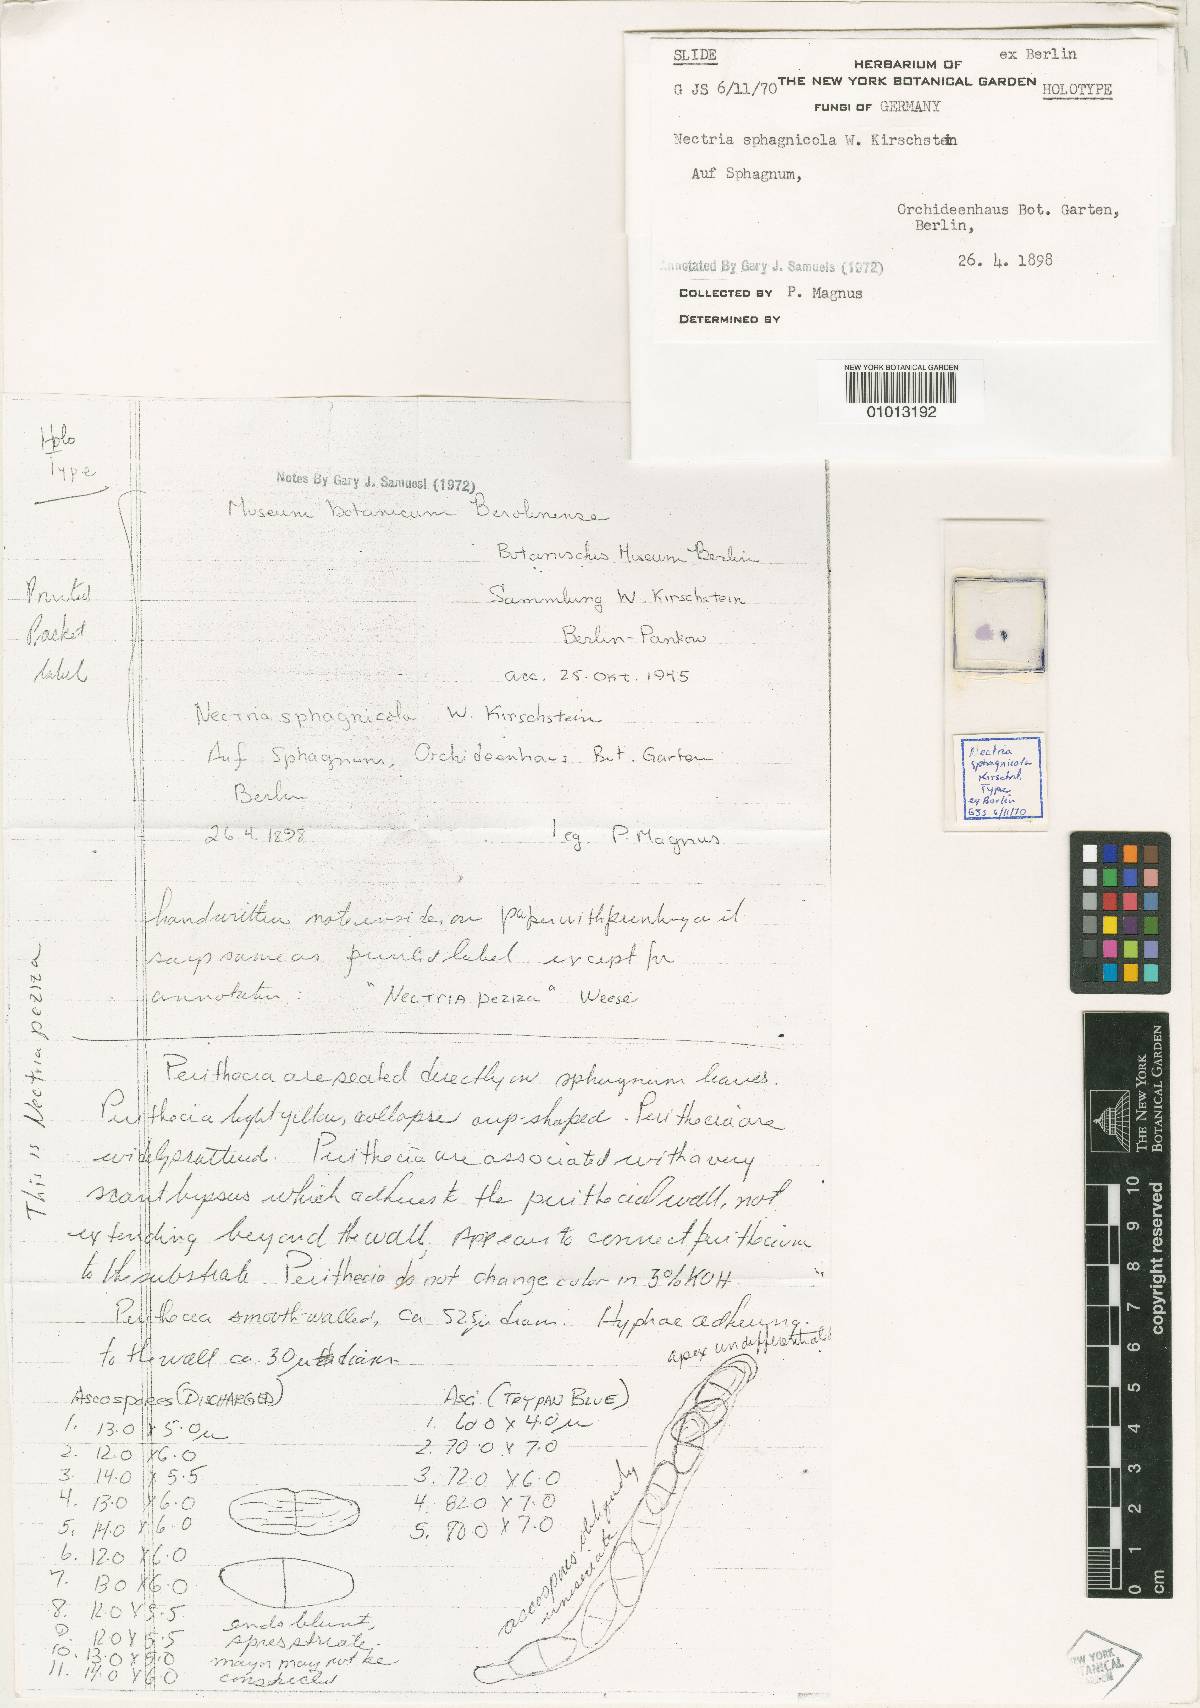 SLIDE
ex Berlin
HERBARIUM OF
G JS 6/11/70 THE NEW YORK BOTANICAL GARDEN HOLOTYPE
FUNGI OF GERMANY
Nectria sphagnicola W. Kirschstein
Auf Sphagnum,
Orchideenhaus Bot. Garten,
Berlin,
26. 4. 1898
Annotated By Gary J. Samuels (1972)
COLLECTED BY P. Magnus
DETERMINED BY
NEW YORK BOTANICAL GARDEN
01013192
Holo
Type
Notes By Gary J. Samuesl (1972)
Museum Botanicum Berolinense
Botanisches Museum Berlin
Sammlung W. Kirschstein
Berlin-Pankow
acc. 25. Okt. 1945
Printed
Packet
label
Nectria sphagnicola W. Kirschstein
Auf Sphagnum, Orchideenhaus Bot. Garten
Berlin
26.4.1898 leg. P. Magnus
handwritten note inside, on paper with printing on it
says same as printed label except for
annotation: "Nectria peziza" Weese
This is Nectria peziza
Perithecia are seated directly on sphagnum leaves.
Perithecia light yellow, collapse cup-shaped. Perithecia are
widely scattered. Perithecia are associated with a very
scant byssus which adheres to the perithecial wall, not
extending beyond the wall. Appears to connect perithecium
to the substrate. Perithecia do not change color in 3% KOH.
Perithecia smooth-walled, ca 525µ diam. Hyphae adhering
to the wall ca. 3.0µ diam.
apex undifferentiated
Ascospores (Discharged)
1. 13.0 X 5.0µ
2. 12.0 X 6.0
3. 14.0 X 5.5
4. 13.0 X 6.0
5. 14.0 X 6.0
6. 12.0 X 6.0
7. 13.0 X 6.0
8. 12.0 X 5.5
9. 12.0 X 5.5
10. 13.0 X 5.0
11. 14.0 X 6.0
ends blunt,
spores striate.
may or may not be
constricted
Asci (Trypan Blue)
1. 60.0 X 4.0µ
2. 70.0 X 7.0
3. 72.0 X 6.0
4. 82.0 X 7.0
5. 80.0 X 7.0
ascospores obliquely
uniseriate
Nectria
sphagnicola
Kirschst.
Type
ex Berlin
GJS 6/11/70
THE NEW YORK
BOTANICAL GARDEN
10
9
8
7
6
5
4
3
2
1
0
cm
copyright reserved
NEW YORK
BOTANICAL
GARDEN